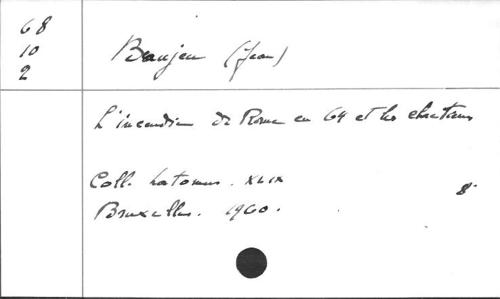 68
10
2
Beaujeu (Jean)
L'incendie de Rome en 64 et les chrétiens
Coll. Latomus. XLIX
Bruxelles. 1960.
8°